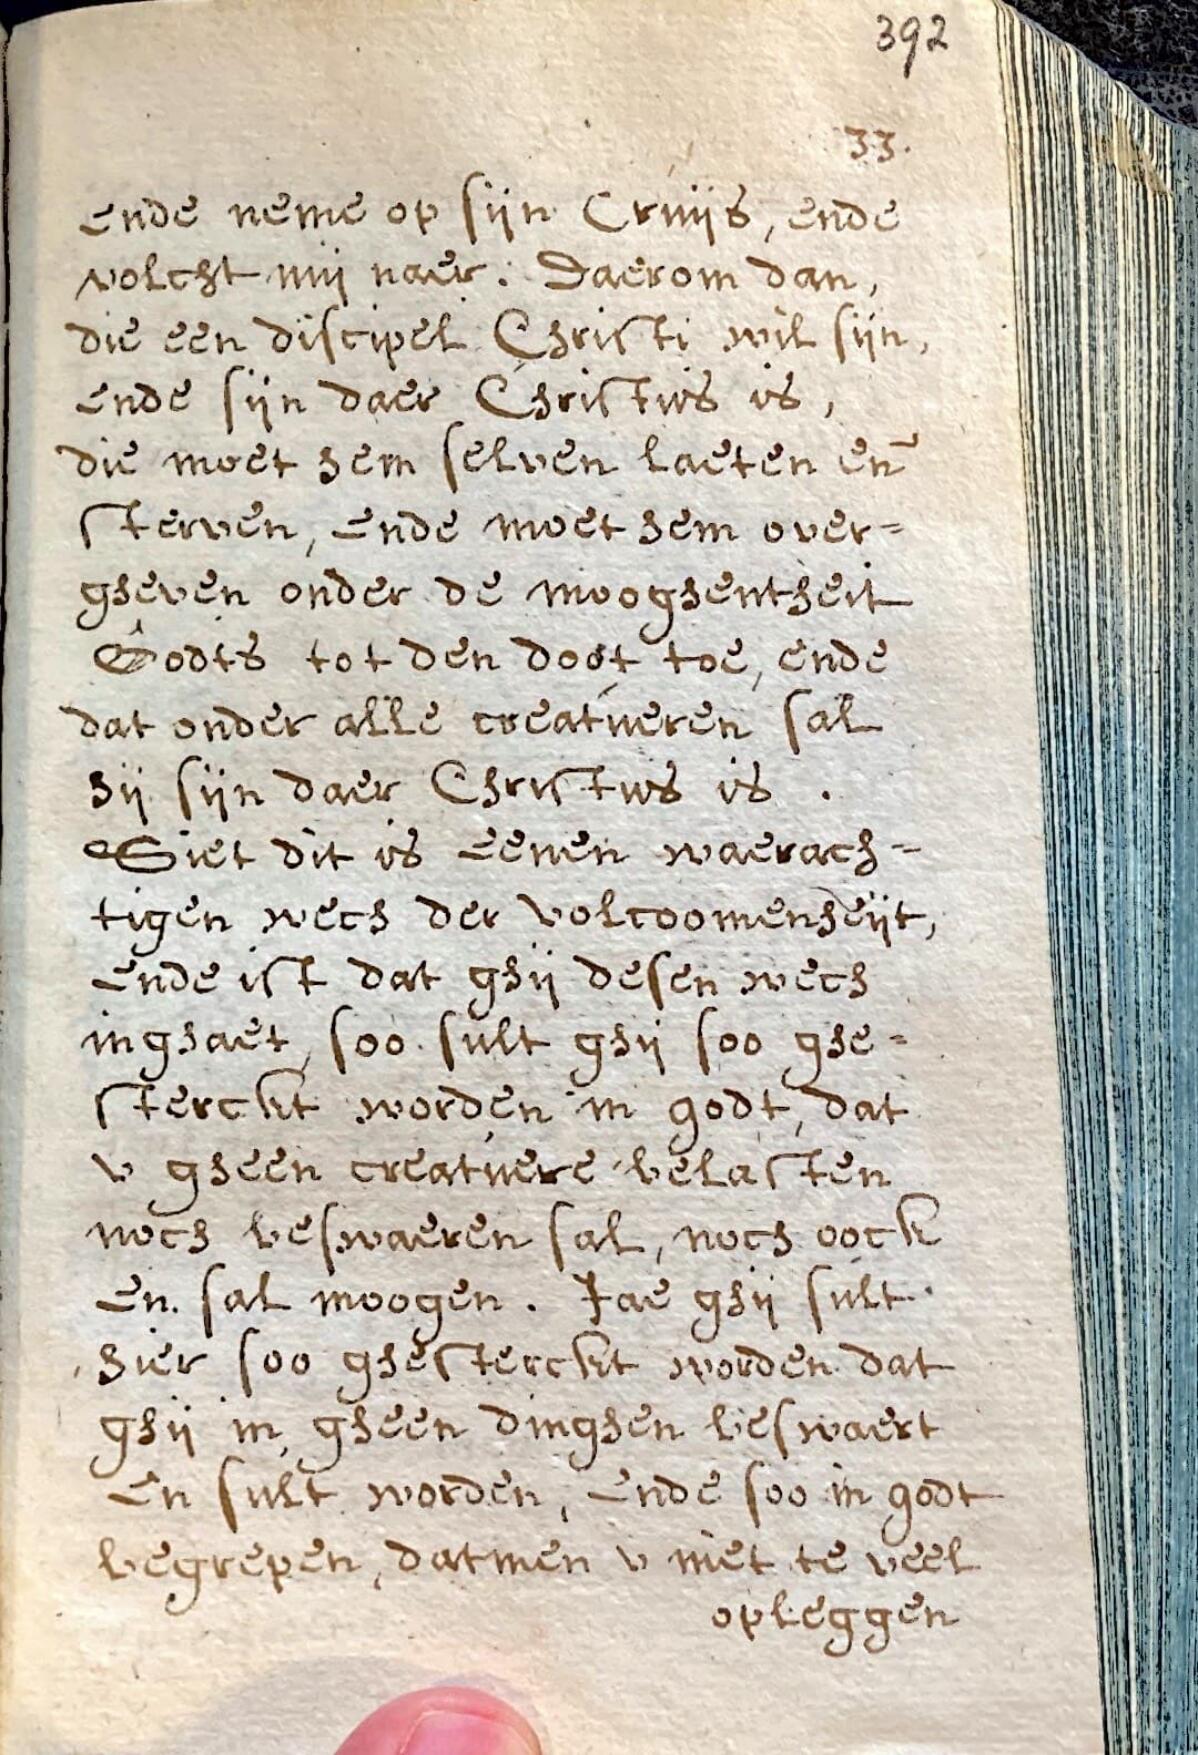 392
33.
ende neme op sijn Cruijs, ende
volcht mij naer. Daerom dan,
die een discipel Christi wil sijn,
ende sijn daer Christus is,
die moet hem selven laeten en̄
sterven, ende moet hem over=
gheven onder de mooghentheit
Godts tot den doot toe, ende
dat onder alle creatueren sal
hij sijn daer Christus is .
Siet dit is eenen waerach=
tigen wech der volcoomenheijt,
ende ist dat ghij desen wech
inghaet, soo sult ghij soo ghe=
sterckt worden in godt, dat
v gheen creatuere belasten
noch beswaeren sal, noch oock
en sal moogen. Jae ghij sult
hier soo ghesterckt worden dat
ghij in gheen dinghen beswaert
en sult worden, ende soo in godt
begrepen, datmen v niet te veel
opleggen